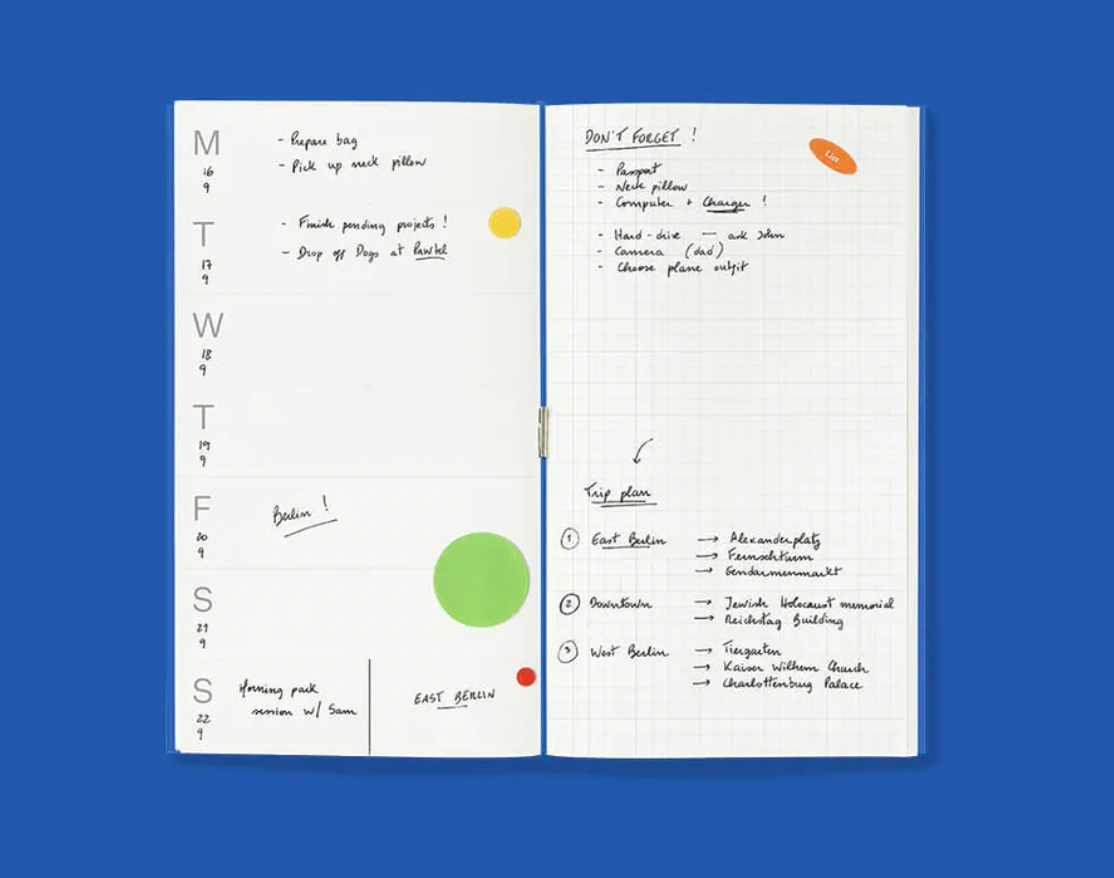 M
16
9
- Prepare bag
- Pick up neck pillow
T
17
9
- Finish pending projects !
- Drop off Dogs at Pawtel
W
18
9
T
19
9
F
20
9
Berlin !
S
21
9
S
22
9
Morning park
session w/ Sam
EAST BERLIN
DON'T FORGET !
List
- Passport
- Neck pillow
- Computer + Charger !
- Hard-drive — ask John
- Camera (dad)
- Choose plane outfit
Trip plan
1 East Berlin → Alexanderplatz
→ Fernsehturm
→ Gendarmenmarkt
2 Downtown → Jewish Holocaust memorial
→ Reichstag Building
3 West Berlin → Tiergarten
→ Kaiser Wilhem Church
→ Charlottenburg Palace